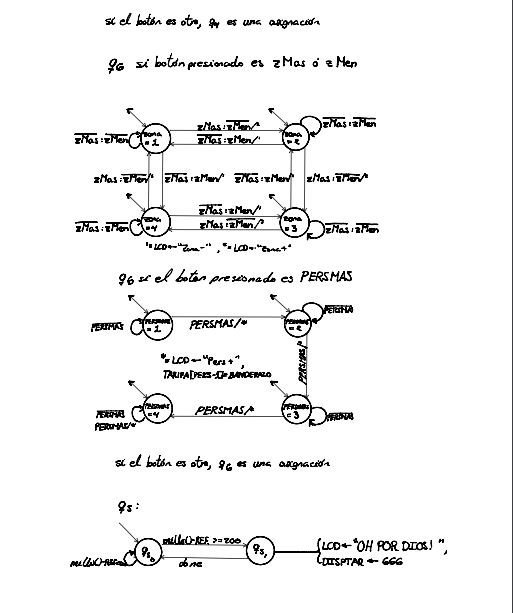 si el botón es otro, q4 es una asignación
q6 si botón presionado es zMas ó zMen
zMas:zMen/
zMas:zMen
zona = 1
zMas:zMen/
zona = 2
zMas:zMen
zMas:zMen/ zMas:zMen/ zMas:zMen/ zMas:zMen/
zMas:zMen/
zMas:zMen
zona = 4
zMas:zMen/
zona = 3
zMas:zMen
LCD←"Zona-" , LCD←"Zona+"
q6 si el botón presionado es PERSMAS
PERSMAS
= 1
PERSMAS/*
= 2
PERSMAS
*= LCD ← "Pers+",
PERSMAS/*
TARIFA[PERS-1]=BANDERAZO
PERSMAS
PERSMAS/*
= 4
PERSMAS/*
= 3
PERSMAS
si el botón es otro, q6 es una asignación
q5:
millis()-REF >=200
q50
q51
LCD ← "OH POR DIOS!",
millis()-REF
done
DISPTAR ← 666